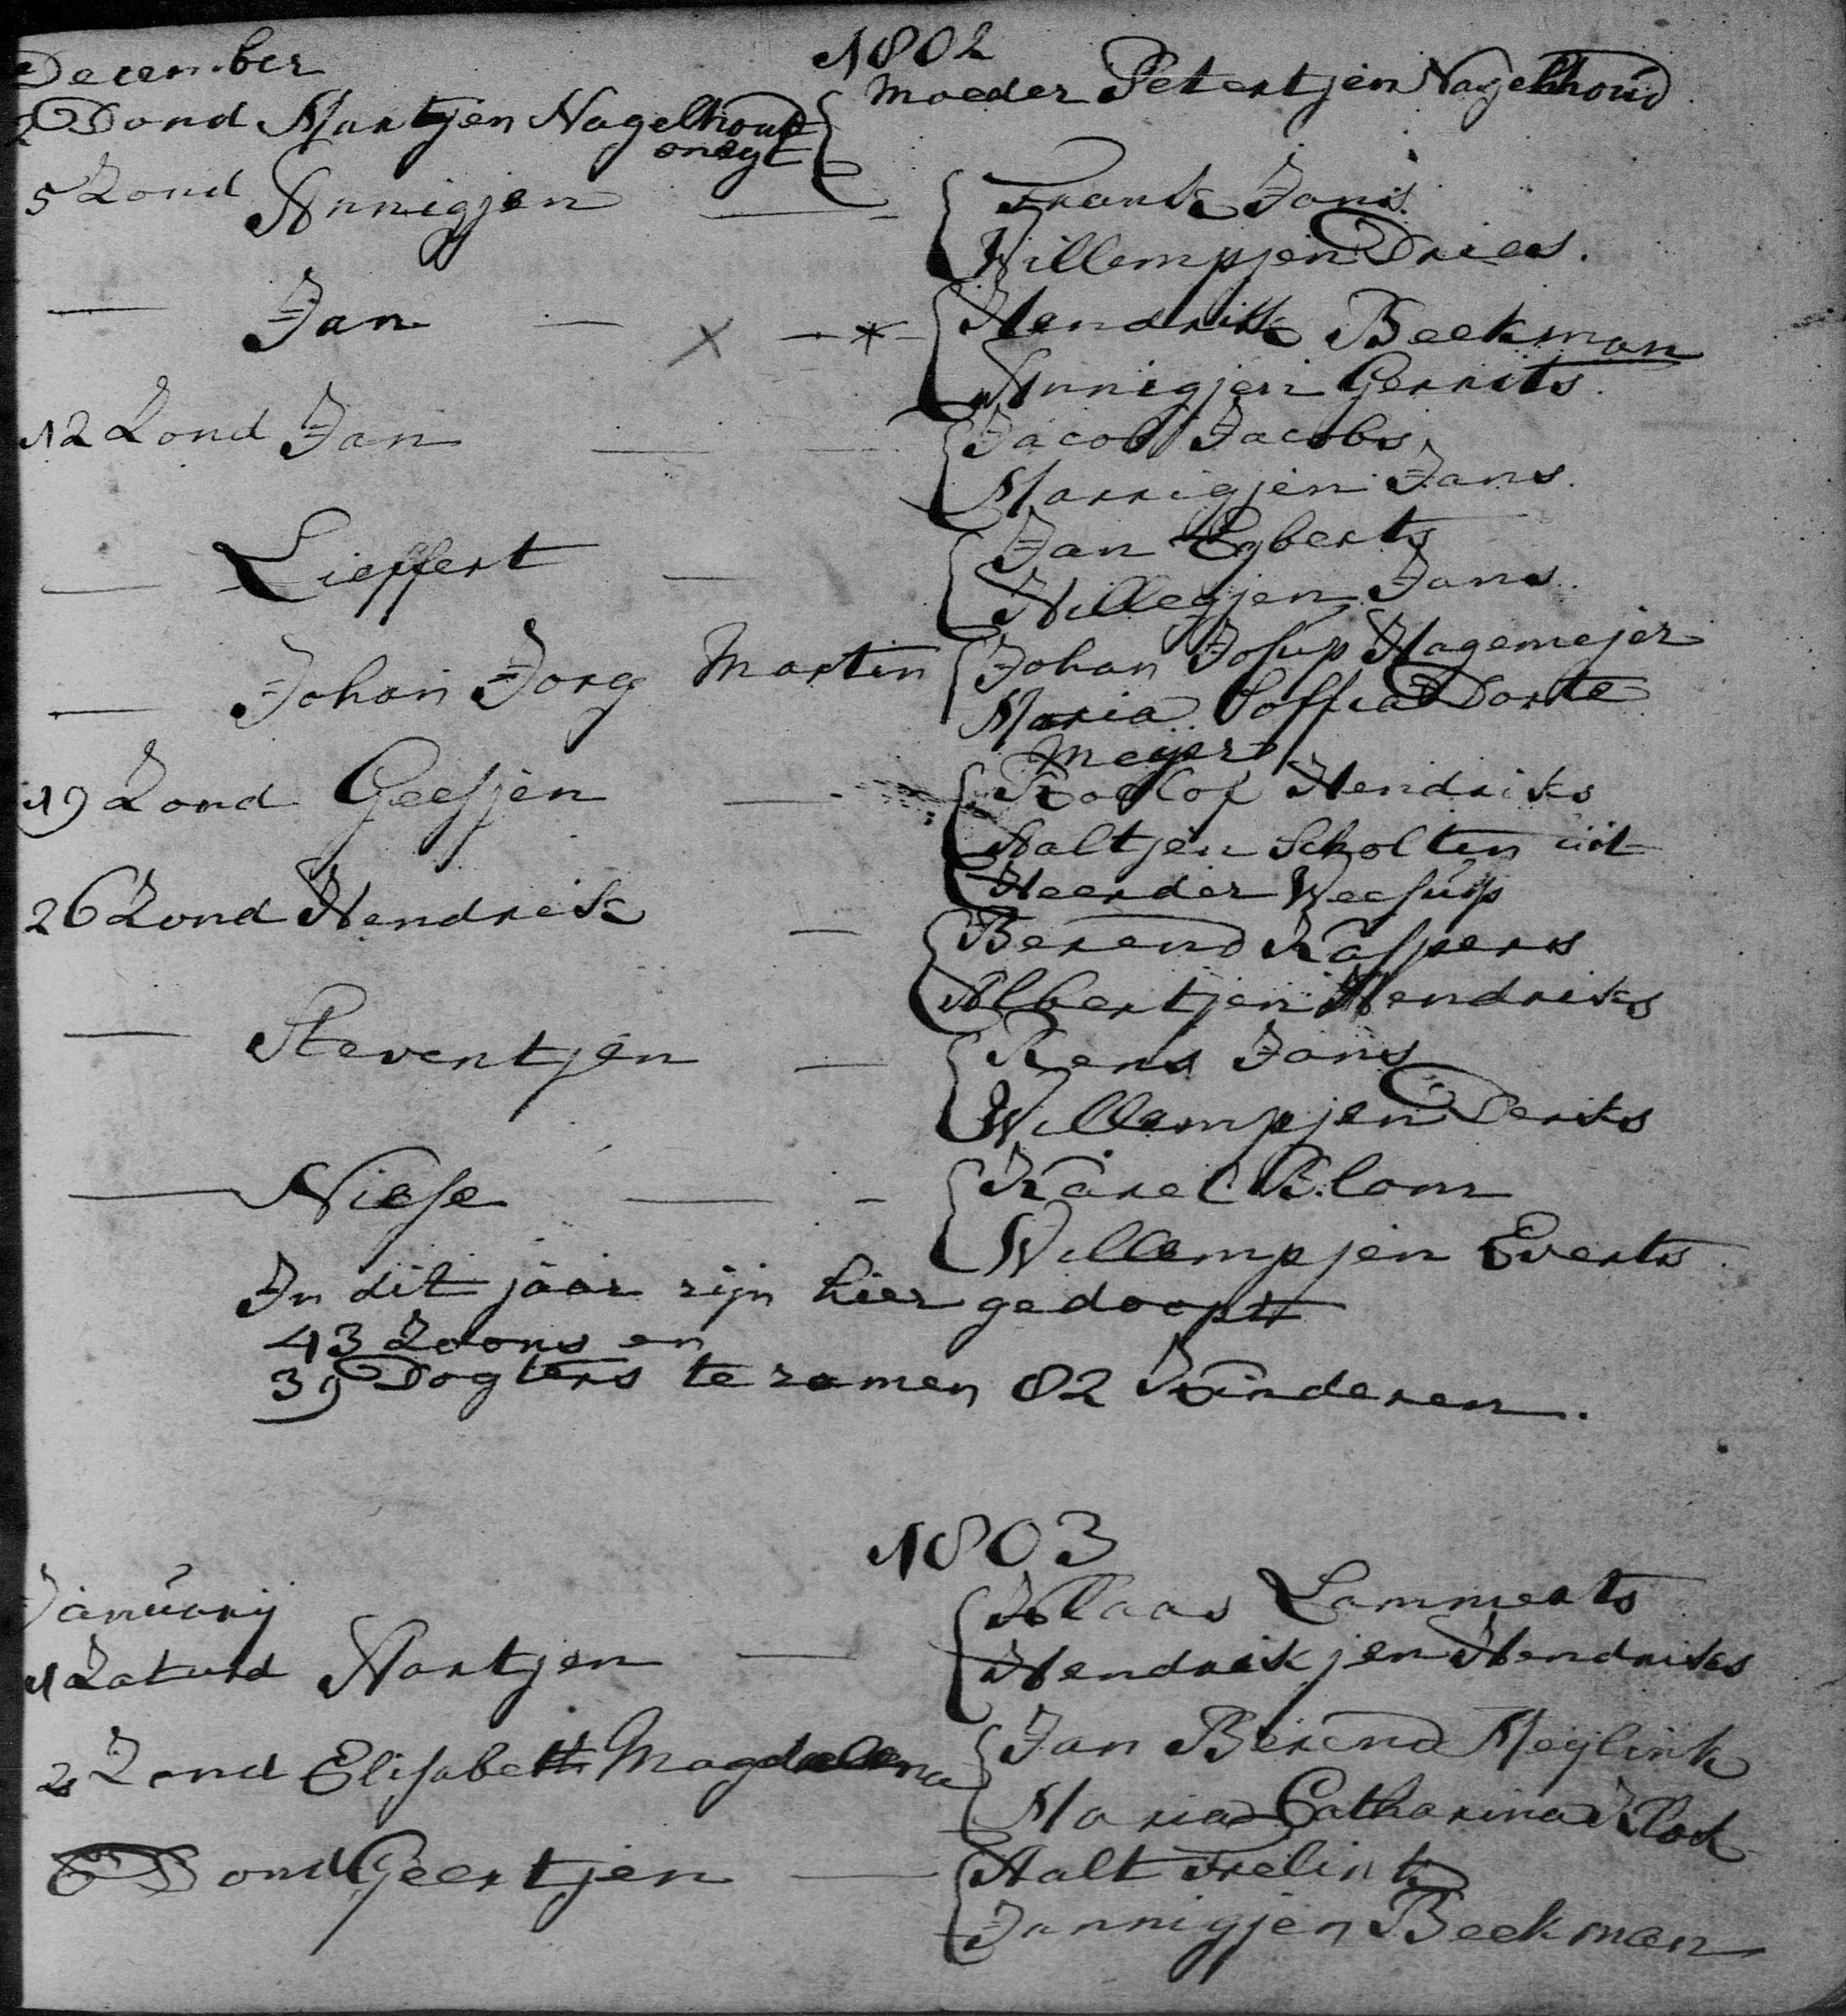 1802
December
2 Dond Martjen Nagelhout { Moeder Petertjen Nagelhoud
onegt
5 Zond Annigjen — { Frank Jans.
Willempjen Dries.
— Jan — X — * — { Hendrik Beekman
Annigjen Gerrits.
12 Zond Jan — { Jacob Jacobs
Marrigjen Jans.
— Lieffert — { Jan Egberts
Hillegjen Jans.
— Johan Jorg Martin { Johan Josup Hagemejer
Maria Soffia Dorte
Meyer
19 Zond Geesjen — { Roelof Hendriks
Aaltjen Scholten uit
Heerder Weesup
26 Zond Hendrik — { Berend Kaspers
Albertjen Hendriks
— Steventjen — { Rens Jans
Willempjen Deriks
— Niese — { Karel Blom
Willempjen Everts
In dit jaar zijn hier gedoopt
43 Zoons en
39 Dogters te zamen 82 Kinderen.
1803
Januarij
1 Zaturd Aartjen — { Klaas Lammerts
Hendrikjen Hendriks
2 Zond Elisabeth Magdalena { Jan Berend Meylink
Maria Catharina Klock
6 Dond Geertjen — { Aalt Frelink
Jannigjen Beekman